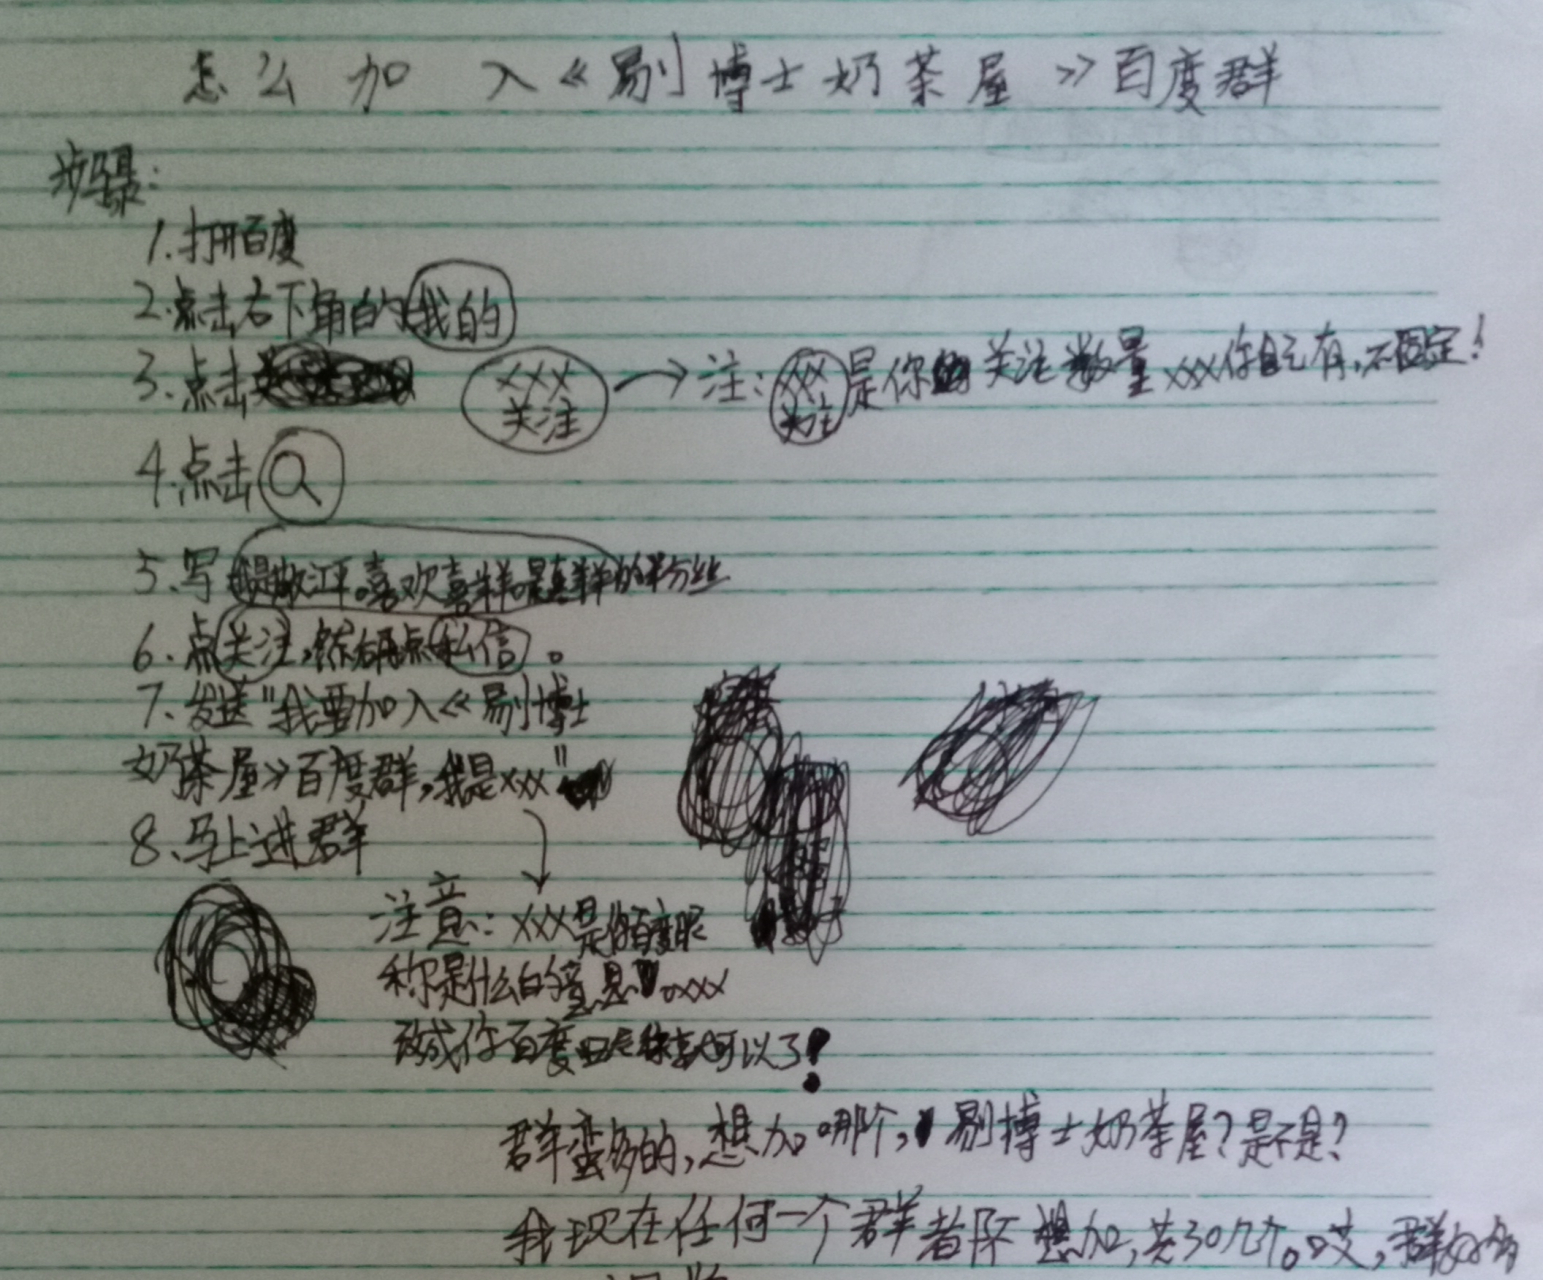 怎么加入《剔博士奶茶屋》百度群
步骤:
1.打开百度
2.点击右下角的我的
3.点击 xxx 关注 → 注: xxx 关注 是你的关注数量 xxx你自己有,不固定!
4.点击
5.写 江平。喜欢喜羊羊的粉丝
6.点关注,然后再点私信。
7.发送"我要加入《剔博士
奶茶屋》百度群,我是xxx"
8、马上进群
注意:xxx是你百度昵
称是什么的意思。xxx
改成你百度昵称就可以了!
群蛮多的,想加哪个,剔博士奶茶屋?是不是?
我现在任何一个群都不想加,共30几个。哎,群好多